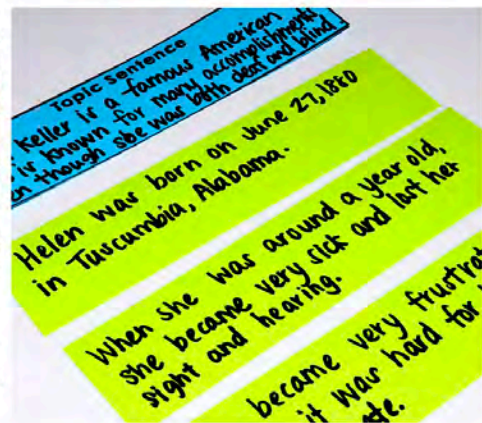 Topic Sentence
Keller is a famous American
is known for many accomplishments
though she was both deaf and blind
Helen was born on June 27, 1880
in Tuscumbia, Alabama.
When she was around a year old,
she became very sick and lost her
sight and hearing.
became very
it was hard for